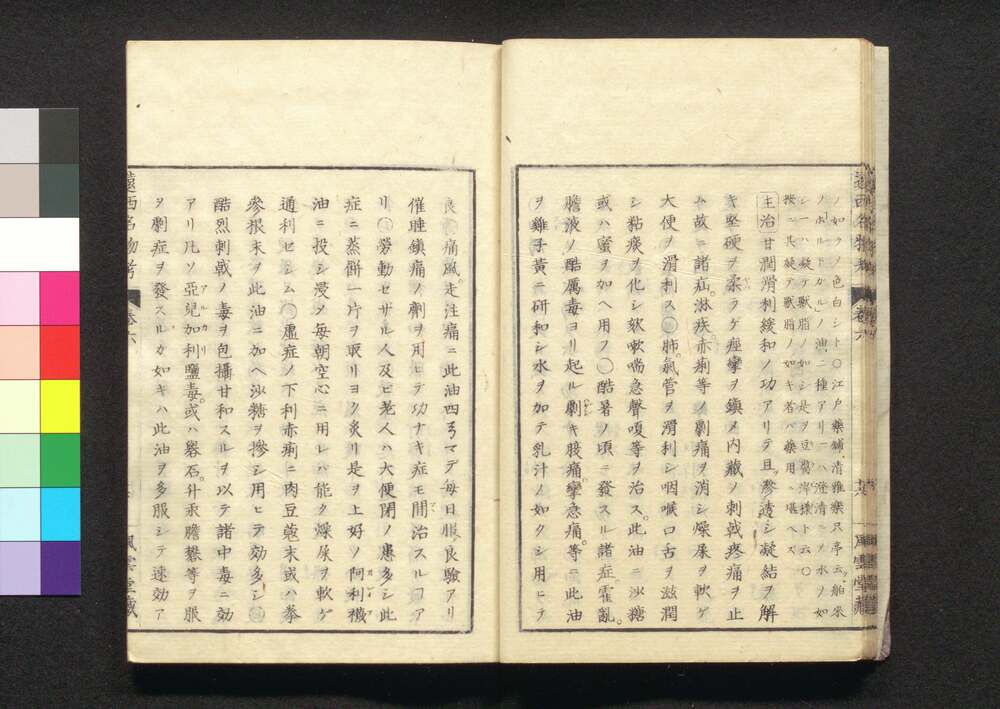 ノ如クノ色白シト○江戸藥舗清雅樂只亭云舶來
ノホルトガルノ油二種アリ一ハ澄清ニノ水ノ如
シ一ハ凝テ獸脂ノ如シ是ヲ豆腐滓様ト云○
按ニ其凝テ獸脂ノ如キ者バ藥用ニ堪ヘズ
主治甘潤滑利緩和ノ功アリテ且滲透シ凝結ヲ解
キ堅硬ヲ柔ラゲ痙攣ヲ鎭メ内藏ノ刺戟疼痛ヲ止
ム故ニ諸疝淋疾赤痢等ノ劇痛ヲ消シ燥屎ヲ軟ゲ
大便ヲ滑利ス○肺氣管ヲ滑利シ咽喉口舌ヲ滋潤
シ粘痰ヲ化シ欬嗽喘急聲嗄等ヲ治ス此油ニ沙糖
或ハ蜜ヲ加ヘ用フ○酷暑ノ頃ニ發スル諸症霍亂
膽液ノ酷厲毒ヨリ起ル劇キ腹痛攣急痛等ニ此油
ヲ雞子黃ニ研和シ水ヲ加テ乳汁ノ如クシ用ヒテ
遠西名物考
卷六
十六
風雲堂藏
良○痛風走注痛ニ此油四弓マデ毎日服良驗アリ
催睡鎭痛ノ劑ヲ用ヒテ功ナキ症モ間治スルコアリ
リ○勞動セザル人及ビ老人ハ大便閉ノ患多シ此
症ニ蒸餅一片ヲ取リヨク炙リ是ヲ上好ノ阿利襪
油ニ投シ浸ノ毎朝空心ニ用レバ能ク燥屎ヲ軟ゲ
通利セシム○虛症ノ下利赤痢ニ肉豆蔻末或ハ拳
參根末ヲ此油ニ加ヘ沙糖ヲ摻シ用ヒテ効多シ○
酷烈刺戟ノ毒ヲ包攝甘和スルヲ以テ諸中毒ニ効
アリ凡ソ亞兒加利鹽毒或ハ礜石升汞膽礬等ヲ服
ヲ劇症ヲ發スルカ如キハ此油ヲ多服シテ速効ア
遠西名物考
卷六
風雲堂藏